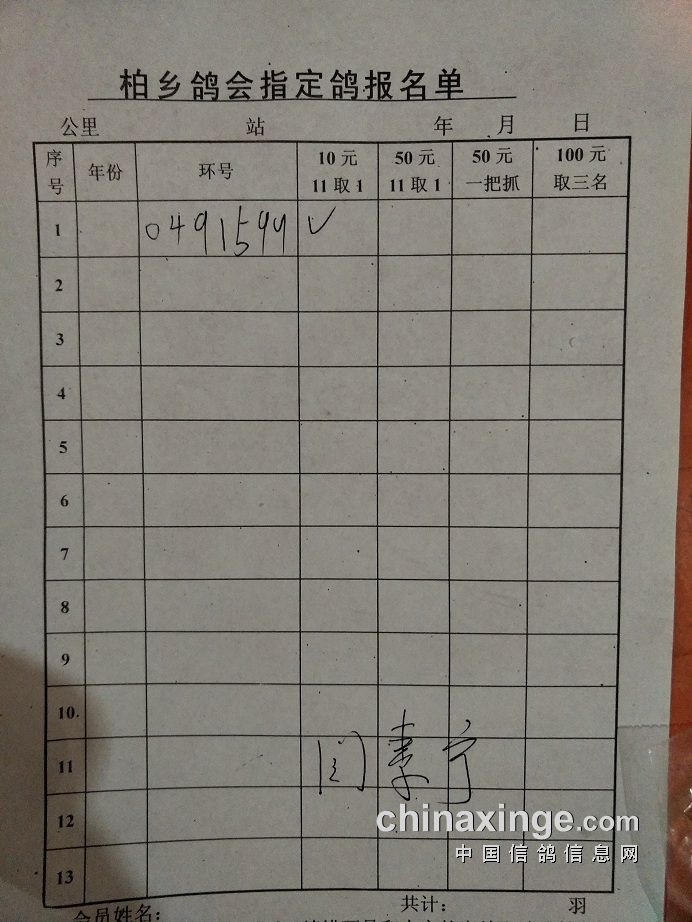 柏乡鸽会指定鸽报名单
公里 站 年 月 日
序号 年份 环号 10元 11取1 50元 11取1 50元 一把抓 100元 取三名
1 0491599 ✓
2
3
4
5
6
7
8
9
10.
11 闫素宁
12
13
chinaxinge.com
中国信鸽信息网
会员姓名: 共计: 羽